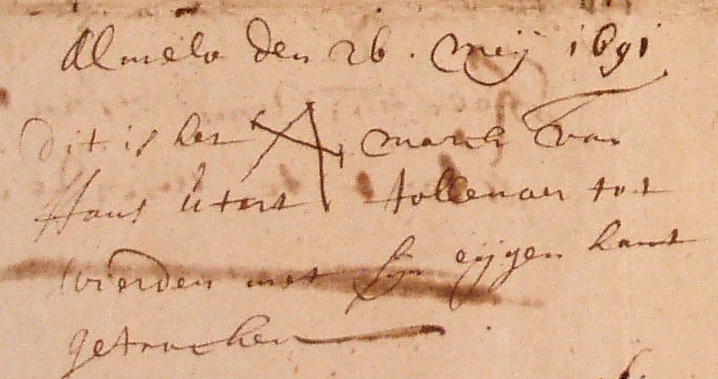 Almelo den 26. meij 1691
dit is het marck van
Hans tollenaer tot
wierden met sijn eijgen hant
getrocken